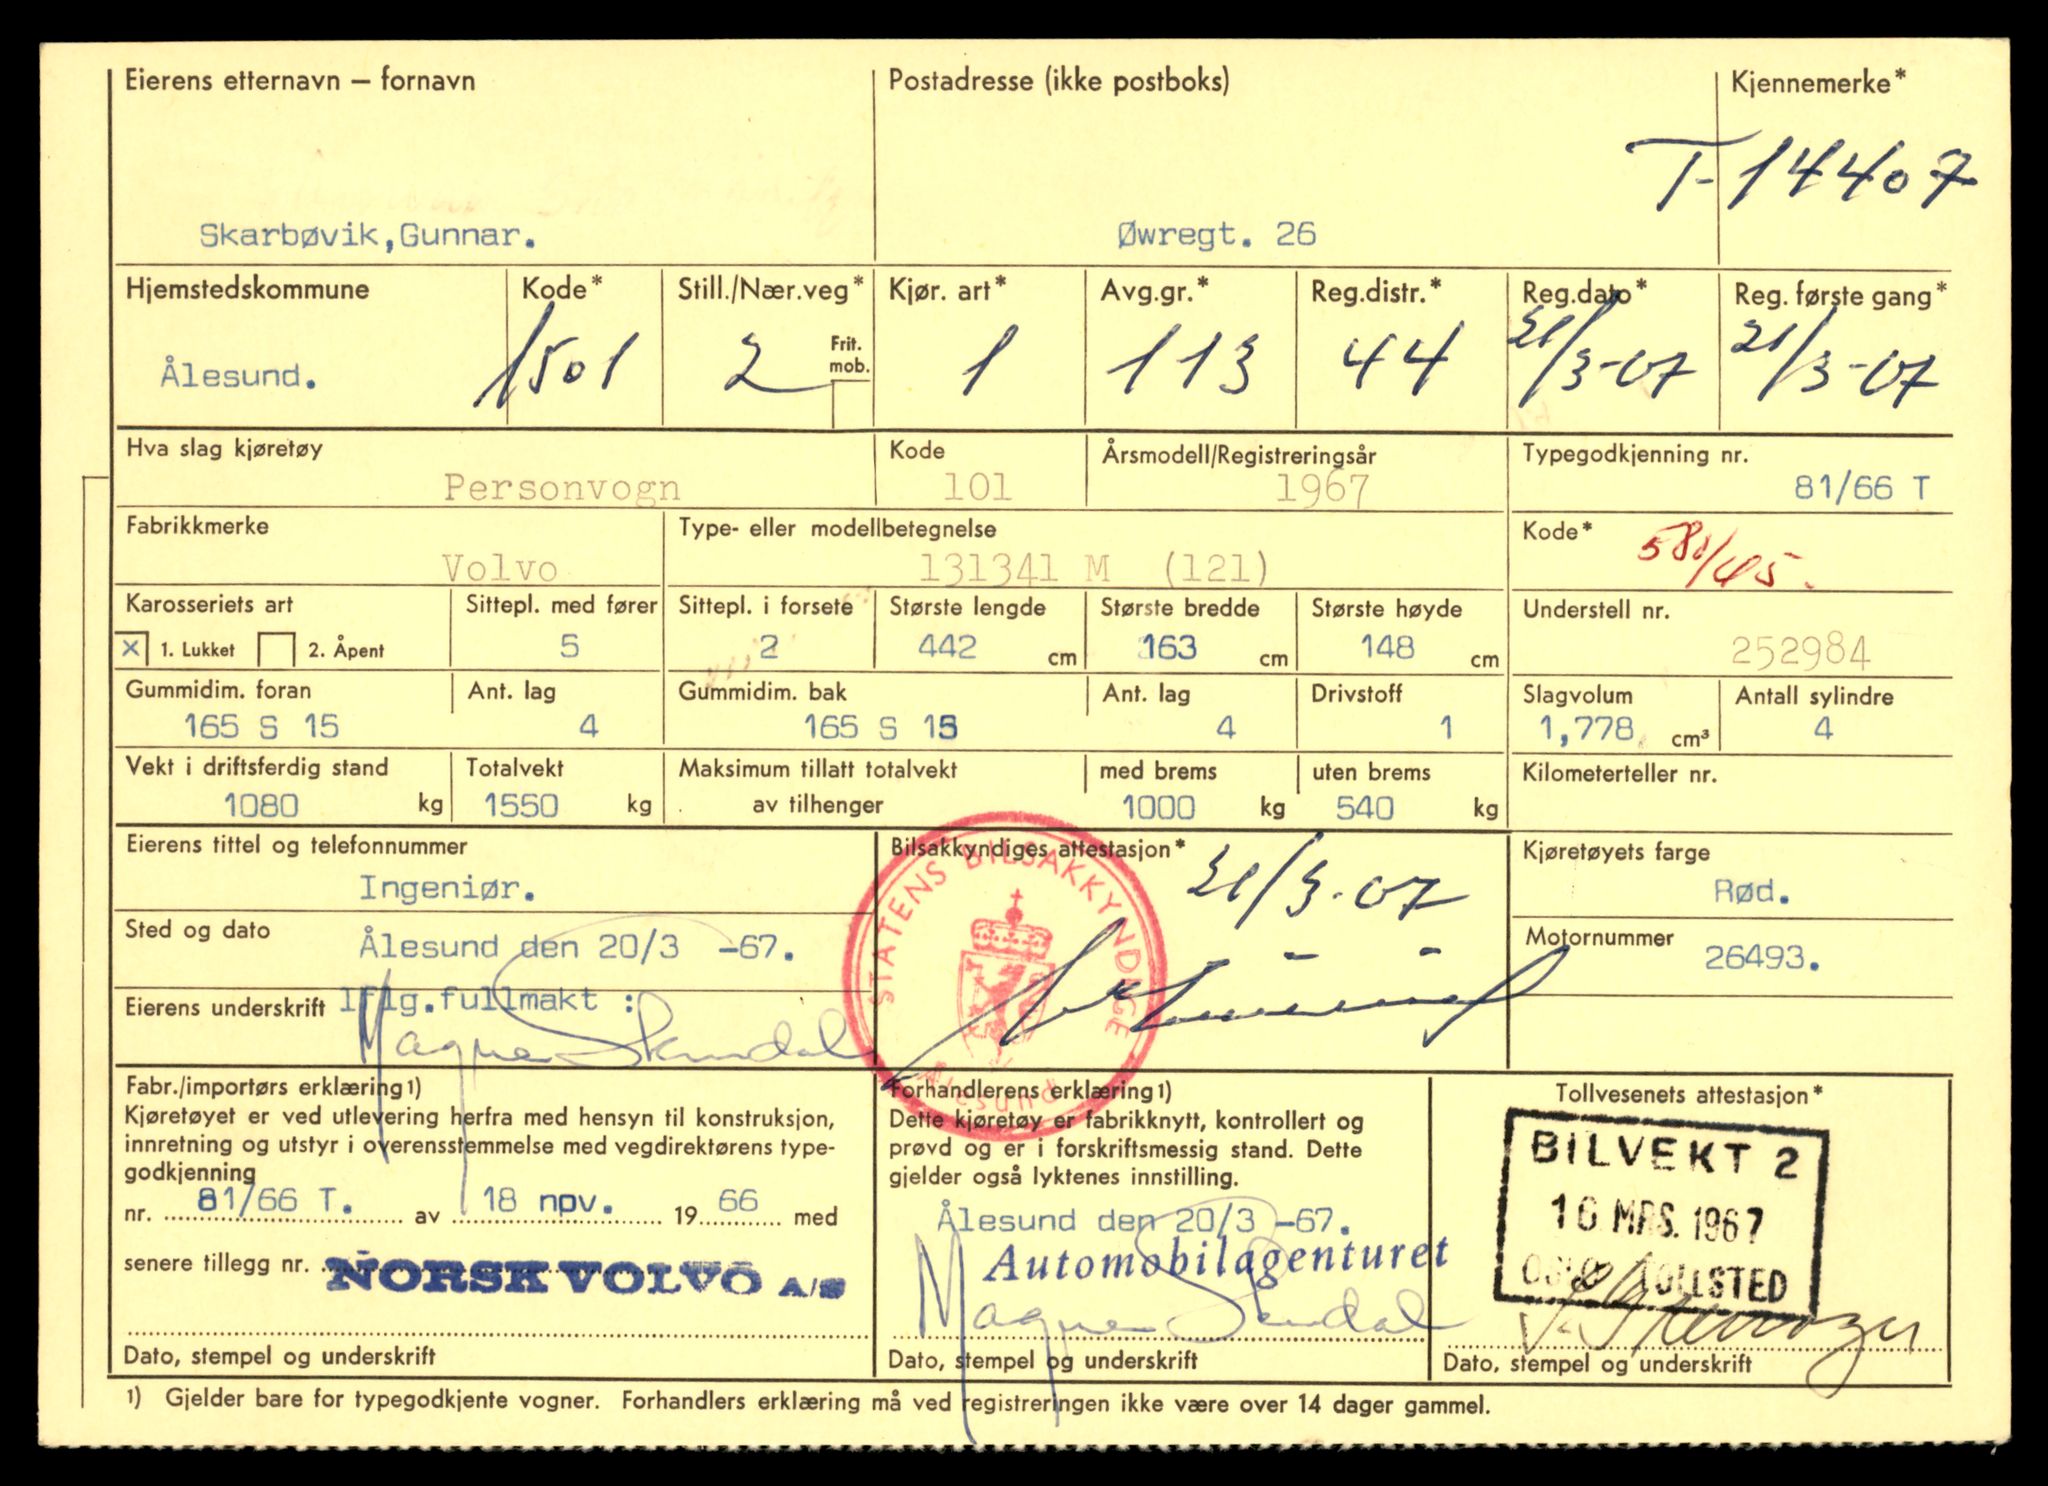 Eierens etternavn — fornavn
Postadresse (ikke postboks)
Kjennemerke*
T-14407
Skarbøvik,Gunnar.
Øwregt. 26
Hjemstedskommune
Kode*
Still./Nær.veg*
Kjør. art*
Avg.gr.*
Reg.distr.*
Reg.dato*
Reg. første gang*
Ålesund.
1501
2
Frit. mob.
1
113
44
21/3-67
21/3-67
Hva slag kjøretøy
Kode
Årsmodell/Registreringsår
Typegodkjenning nr.
Personvogn
101
1967
81/66 T
Fabrikkmerke
Type- eller modellbetegnelse
Kode*
Volvo
131341 M (121)
Karosseriets art
Sittepl. med fører
Sittepl. i forsete
Største lengde
Største bredde
Største høyde
Understell nr.
X 1. Lukket
2. Åpent
5
2
442 cm
163 cm
148 cm
252984
Gummidim. foran
Ant. lag
Gummidim. bak
Ant. lag
Drivstoff
Slagvolum
Antall sylindre
165 S 15
4
165 S 15
4
1
1,778 cm³
4
Vekt i driftsferdig stand
Totalvekt
Maksimum tillatt totalvekt
med brems
uten brems
Kilometerteller nr.
1080 kg
1550 kg
av tilhenger
1000 kg
540 kg
Eierens tittel og telefonnummer
Bilsakkyndiges attestasjon*
Kjøretøyets farge
Ingeniør.
21/3-67
Rød.
STATENS BILSAKKYNDIGE
Ålesund
Sted og dato
Ålesund den 20/3 -67.
Motornummer
26493.
Eierens underskrift
Iflg.fullmakt :
Magne Skundal
Fabr./importørs erklæring1)
Kjøretøyet er ved utlevering herfra med hensyn til konstruksjon,
innretning og utstyr i overensstemmelse med vegdirektørens type-
godkjenning
nr. 81/66 T. av 18 nov. 1966 med
senere tillegg nr.
NORSK VOLVO A/S
Dato, stempel og underskrift
Forhandlerens erklæring1)
Dette kjøretøy er fabrikknytt, kontrollert og
prøvd og er i forskriftsmessig stand. Dette
gjelder også lyktenes innstilling.
Ålesund den 20/3 -67.
Automobilagenturet
Dato, stempel og underskrift
Tollvesenets attestasjon*
BILVEKT 2
16 MRS. 1967
OSLO TOLLSTED
Dato, stempel og underskrift
1) Gjelder bare for typegodkjente vogner. Forhandlers erklæring må ved registreringen ikke være over 14 dager gammel.